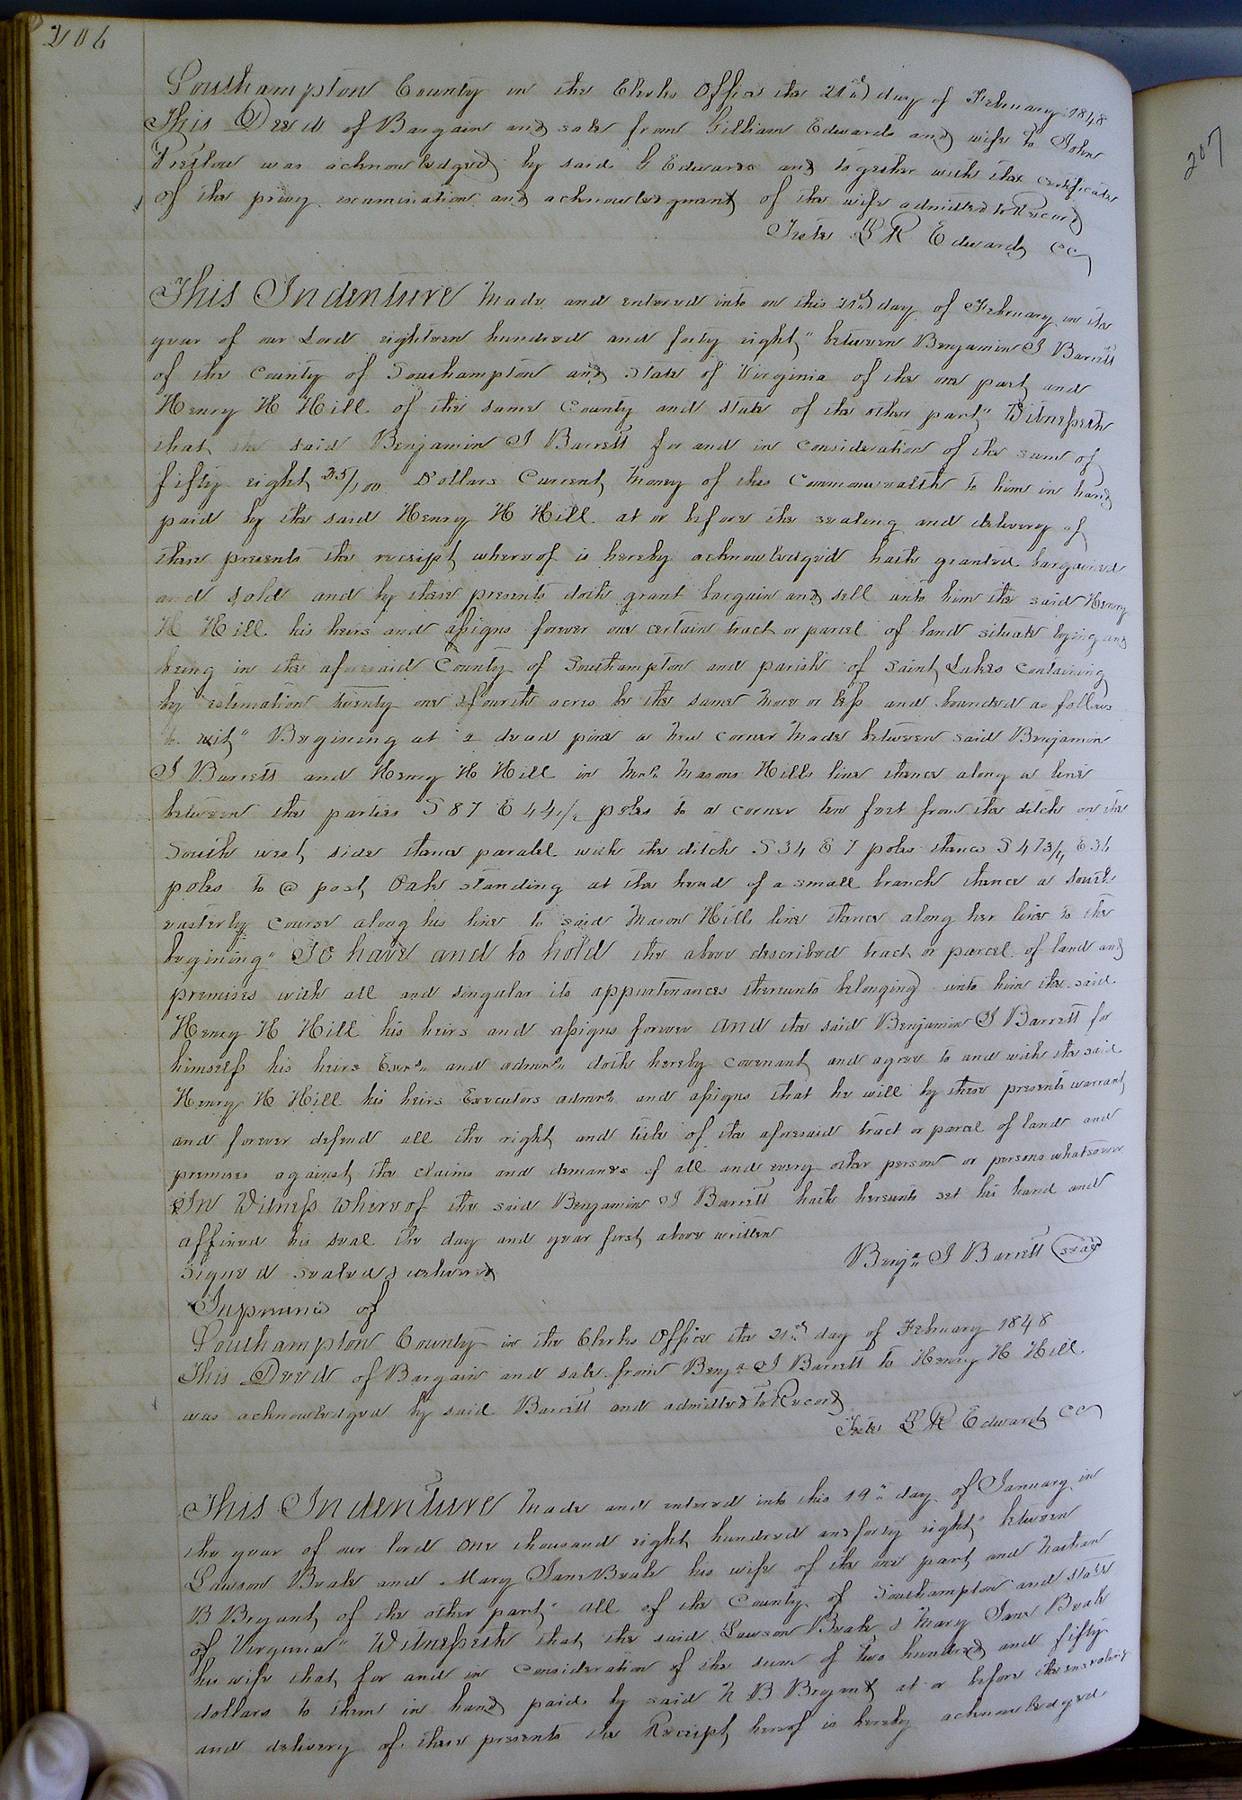 206
Southampton County in the Clerks Office the 21st day of February 1848
This Deed of Bargain and sale from Gilliam Edwards and wife to John
Pretlow was acknowledged by said G Edwards and together with the certificate
of the privy examination and acknowledgment of the wife admitted to Record
Teste L R Edwards CC
This Indenture Made and entered into on this 21st day of February in the
year of our Lord eighteen hundred and forty eight" between Benjamin J Barrett
of the County of Southampton and State of Virginia of the one part and
Henry H Hill of the same County and state of the other part" Witnesseth
that the said Benjamin J Barrett for and in consideration of the sum of
fifty eight 35/100 Dollars Current Money of this Commonwealth to him in hand
paid by the said Henry H Hill at or before the sealing and delivery of
these presents the receipt whereof is hereby acknowledged hath granted bargained
and sold and by these presents doth grant bargain and sell unto him the said Henry
H Hill his heirs and assigns forever one certain tract or parcel of land situate lying and
being in the aforesaid County of Southampton and parish of Saint Lukes Containing
by estimation twenty one fourth acres be the same More or less and bounded as follows
to wit" Begining at a dead pine a new corner Made between said Benjamin
J Barrett and Henry H Hill in Mrs Masons Hills line thence along a line
between the parties S 87 E 44 1/2 poles to a corner ten feet from the ditch on the
South west side thence paralel with the ditch S 34 E 7 poles thence S 47 3/4 E 36
poles to a post Oak standing at the head of a small branch thence a South
easterly course along his line to said Mason Hills line thence along her line to the
begining" To have and to hold the above described tract or parcel of land and
premises with all and singular its appurtenances thereunto belonging unto him the said
Henry H Hill his heirs and assigns forever And the said Benjamin J Barrett for
himself his heirs Exors and admrs doth hereby covenant and agree to and with the said
Henry H Hill his heirs Executors admrs and assigns that he will by these presents warrant
and forever defend all the right and title of the aforesaid tract or parcel of land and
premises against the claims and demands of all and every other person or persons whatsoever
In Witness Whereof the said Benjamin J Barrett hath hereunto set his hand and
affixed his seal the day and year first above written
Benja J Barrett seal
Signed sealed & delivered
In presence of
Southampton County in the Clerks Office the 21st day of February 1848
This Deed of Bargain and sale from Benja J Barrett to Henry H Hill
was acknowledged by said Barrett and admitted to Record
Teste L R Edwards CC
This Indenture Made and entered into this 19th day of January in
the year of our lord One thousand eight hundred and forty eight" between
Lawson Beale and Mary Jane Beale his wife of the one part and Nathan
B Bryant of the other part" All of the County of Southampton and State
of Virginia" Witnesseth that the said Lawson Beale & Mary Jane Beale
his wife that for and in consideration of the sum of two hundred and fifty
dollars to them in hand paid by said N B Bryant at or before the ensealing
and delivery of these presents the Receipt hereof is hereby acknowledged
207